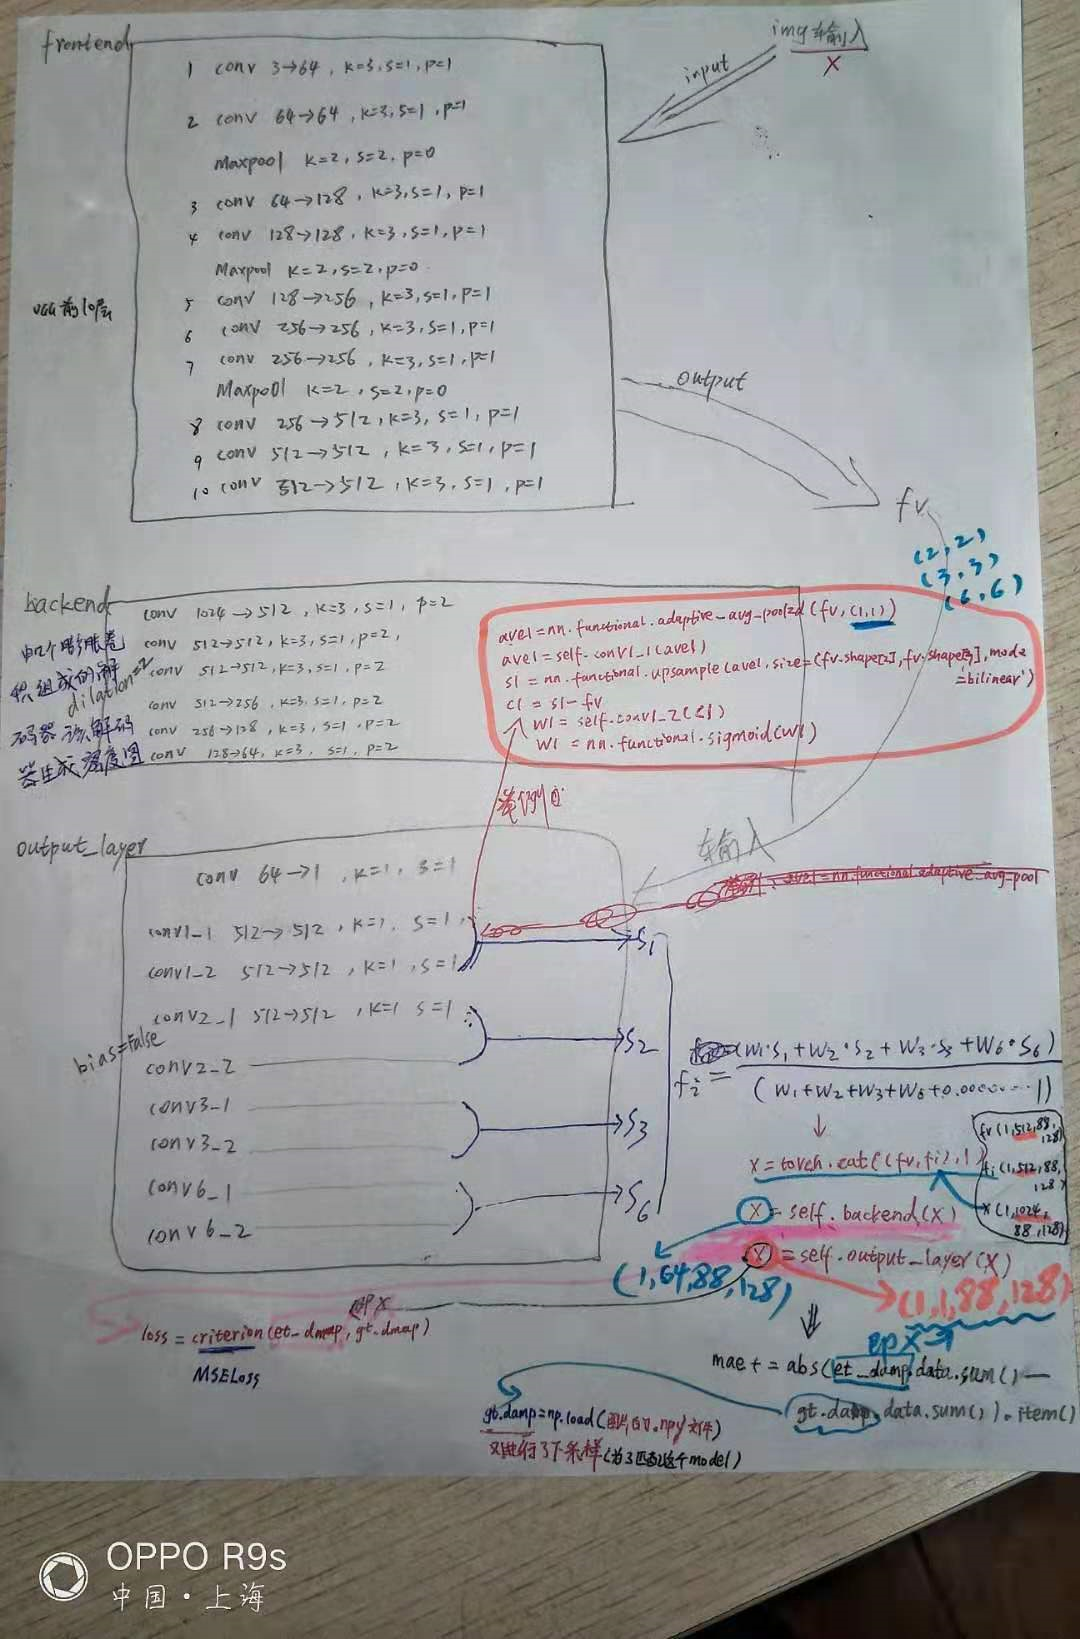 frontend
img输入
X
input
1 conv 3→64, k=3, s=1, p=1
2 conv 64→64, k=3, s=1, p=1
Maxpool k=2, s=2, p=0
3 conv 64→128, k=3, s=1, p=1
4 conv 128→128, k=3, s=1, p=1
Maxpool k=2, s=2, p=0
VGG前10层
5 conv 128→256, k=3, s=1, p=1
6 conv 256→256, k=3, s=1, p=1
7 conv 256→256, k=3, s=1, p=1
Maxpool k=2, s=2, p=0
8 conv 256→512, k=3, s=1, p=1
9 conv 512→512, k=3, s=1, p=1
10 conv 512→512, k=3, s=1, p=1
output
fv
(2,2)
(3,3)
(6,6)
backend
由2个膨胀卷
积组成的解
dilation=2
码器 该解码
器生成密度图
conv 1024→512, k=3, s=1, p=2
conv 512→512, k=3, s=1, p=2,
conv 512→512, k=3, s=1, p=2
conv 512→256, k=3, s=1, p=2
conv 256→128, k=3, s=1, p=2
conv 128→64, k=3, s=1, p=2
ave1=nn.functional.adaptive_avg_pool2d(fv,(1,1))
ave1=self.conv1_1(ave1)
s1=nn.functional.upsample(ave1,size=(fv.shape[2],fv.shape[3],mode
='bilinear')
c1=s1-fv
w1=self.conv1_2(c1)
w1=nn.functional.sigmoid(w1)
output_layer
输入
conv 64→1, k=1, s=1
conv1-1 512→512, k=1, s=1,
conv1_2 512→512, k=1, s=1
conv2_1 512→512, k=1 s=1
bias=False
conv2_2
conv3-1
conv3-2
conv6_1
conv6_2
ave1=nn.functional.adaptive_avg_pool
S1
S2
S3
S6
fi=(W1·S1+W2·S2+W3·S3+W6·S6)
(W1+W2+W3+W6+0.000......1)
x=torch.cat((fv,fi),1)
fv(1,512,88,
128)
fi(1,512,88,
128)
x(1,1024,
88,128)
X=self.backend(X)
(1,64,88,128)
X=self.output_layer(X)
(1,1,88,128)
即X
loss=criterion(et_dmap,gt.dmap)
MSELoss
即X
mae+=abs(et_damp.data.sum()-
gt.damp.data.sum()).item()
gt.damp=np.load(图片的.npy文件)
又进行了下采样(为了匹配这个model)
OPPO R9s
中国·上海